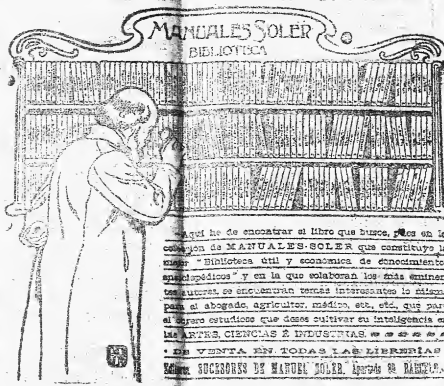 MANUALES SOLER
BIBLIOTECA
Aquí he de encontrar el libro que busco, pues en la
colección de MANUALES-SOLER que constituye la
mejor "Biblioteca útil y económica de conocimientos
enciclopédicos" y en la que colaboran los más eminen-
tes autores, se encuentran temas interesantes lo mismo
para el abogado, agricultor, médico, etc., etc., que para
el obrero estudioso que desee cultivar su inteligencia en
las ARTES, CIENCIAS É INDUSTRIAS.
DE VENTA EN TODAS LAS LIBRERÍAS
SUCESORES DE MANUEL SOLER. Apartado 89